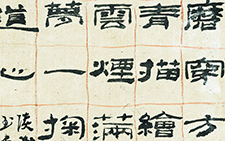 磨穿方
青描繪
雲煙滿
夢一掬
道心